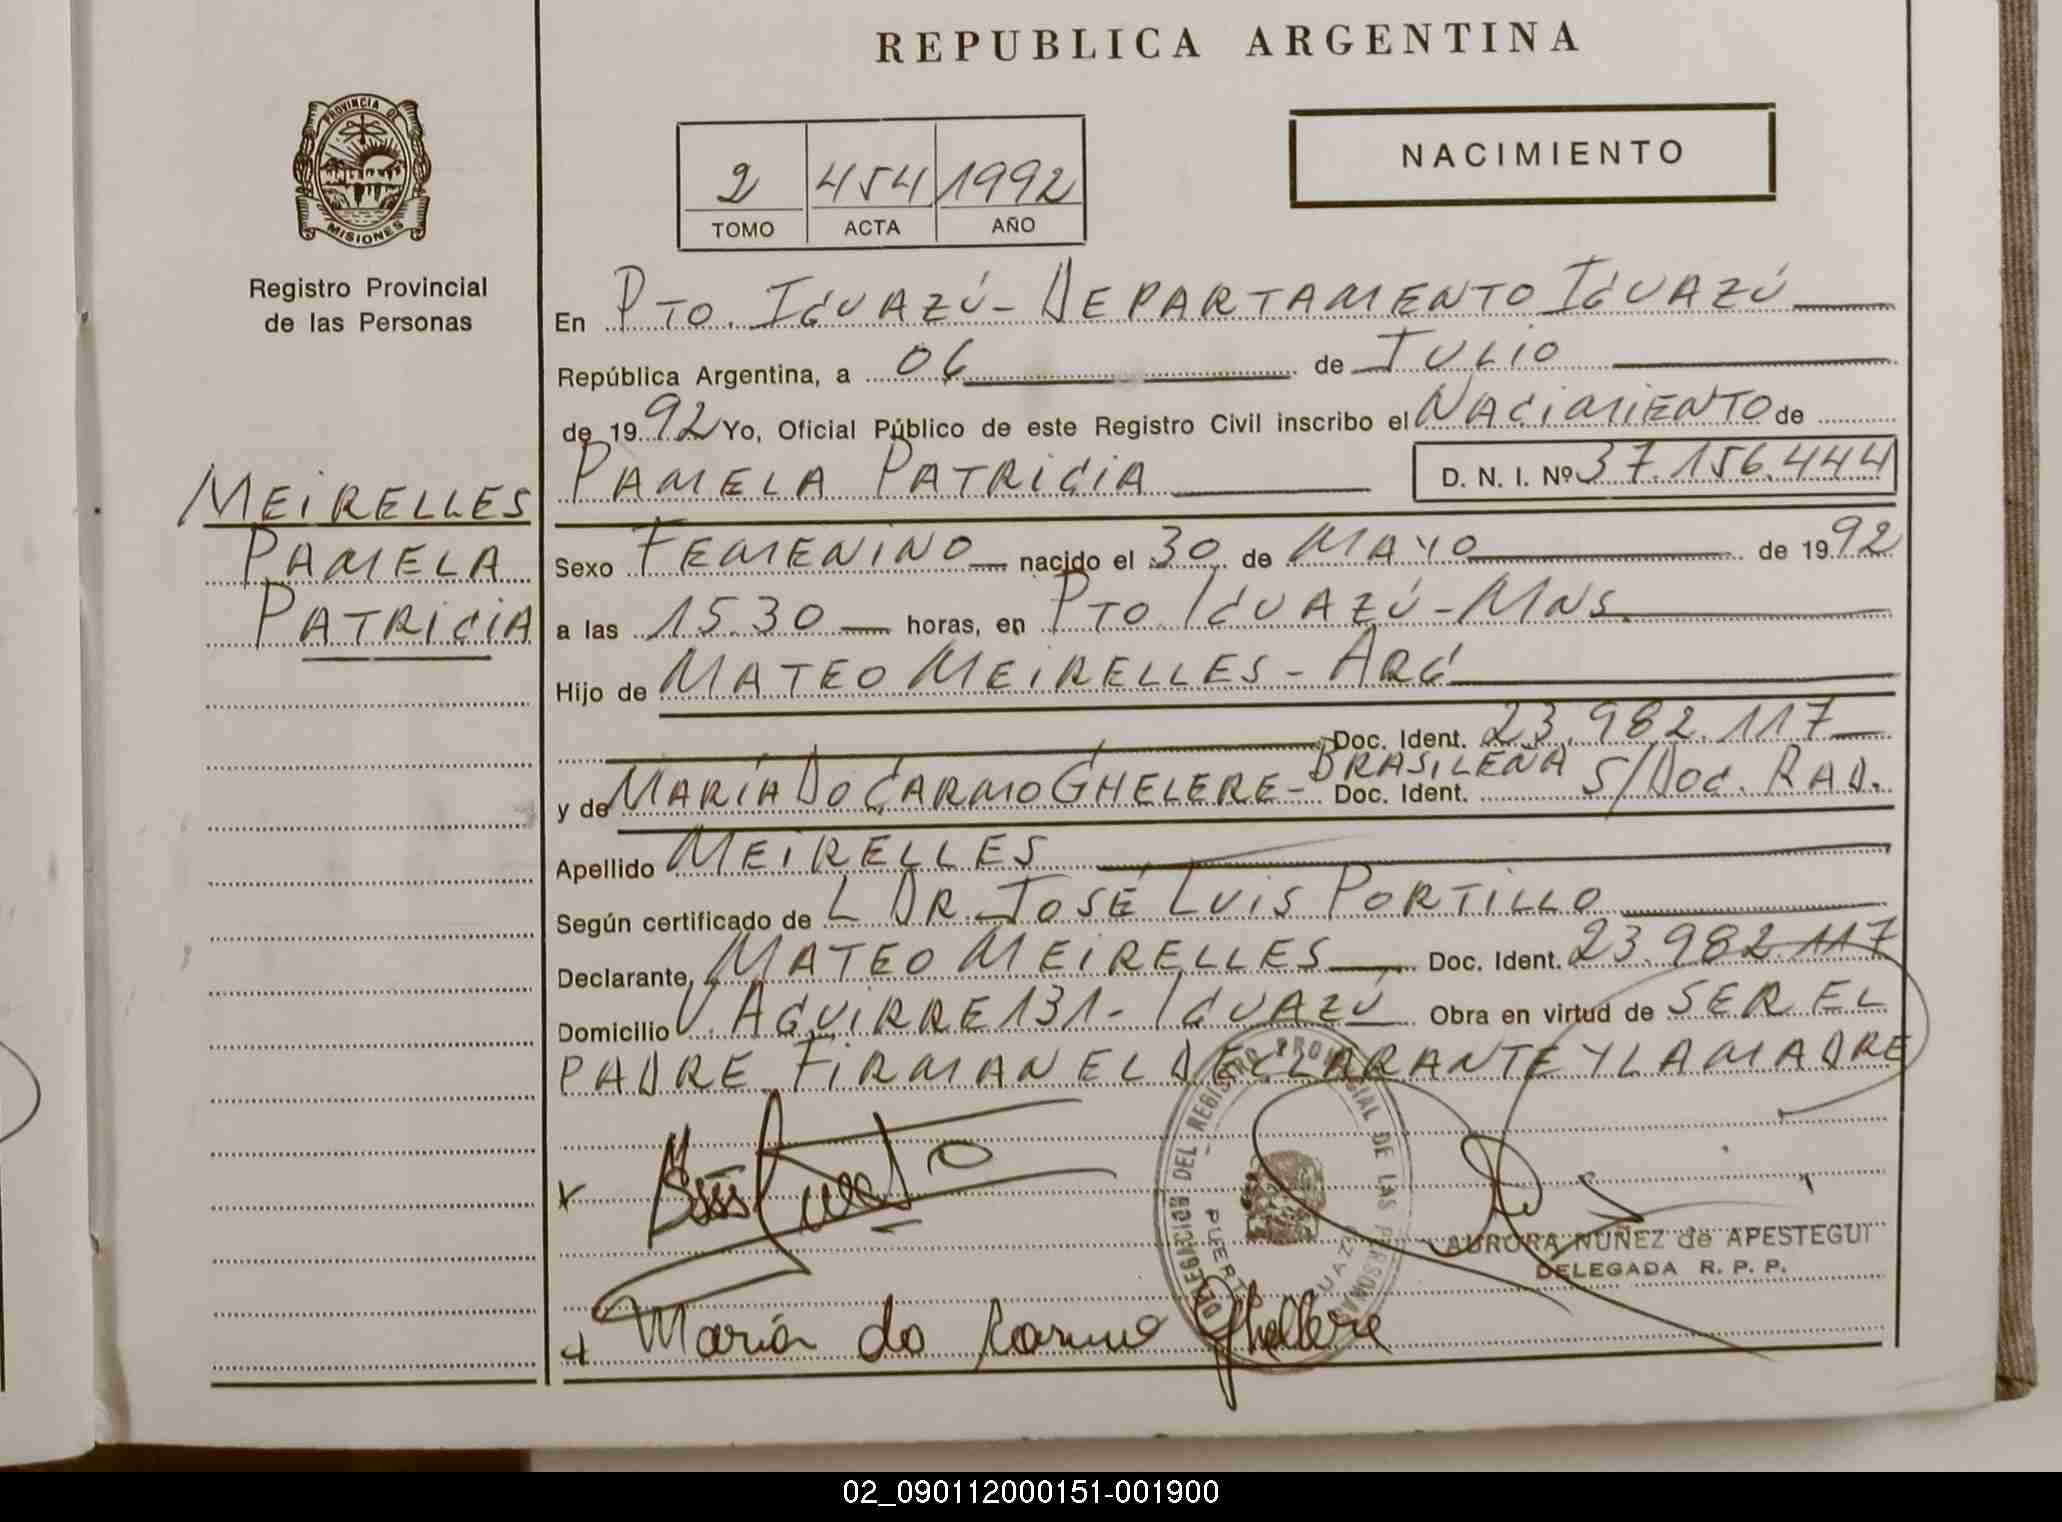 REPUBLICA ARGENTINA
PROVINCIA DE
MISIONES
Registro Provincial
de las Personas
2 454 1992
TOMO ACTA AÑO
NACIMIENTO
En PTO. IGUAZÚ - DEPARTAMENTO IGUAZÚ
República Argentina, a 06 de JULIO
de 1992 Yo, Oficial Público de este Registro Civil inscribo el NACIMIENTO de
PAMELA PATRICIA D. N. I. Nº 37.156.444
MEIRELLES
PAMELA
PATRICIA
Sexo FEMENINO nacido el 30 de MAYO de 1992
a las 15.30 horas, en PTO. IGUAZÚ - MNS.
Hijo de MATEO MEIRELLES - ARG
Doc. Ident. 23.982.117
y de MARÍA DO CARMO GHELERE - BRASILEÑA Doc. Ident. S/DOC. RAD.
Apellido MEIRELLES
Según certificado de L DR. JOSÉ LUIS PORTILLO
Declarante, MATEO MEIRELLES Doc. Ident. 23.982.117
Domicilio V. AGUIRRE 131 - IGUAZÚ Obra en virtud de SER EL
PADRE FIRMAN EL DECLARANTE Y LA MADRE
DELEGACION DEL REGISTRO PROVINCIAL DE LAS PERSONAS
PUERTO IGUAZU
AURORA NUÑEZ de APESTEGUI
DELEGADA R. P. P.
María do Carmo Ghellere
02_090112000151-001900